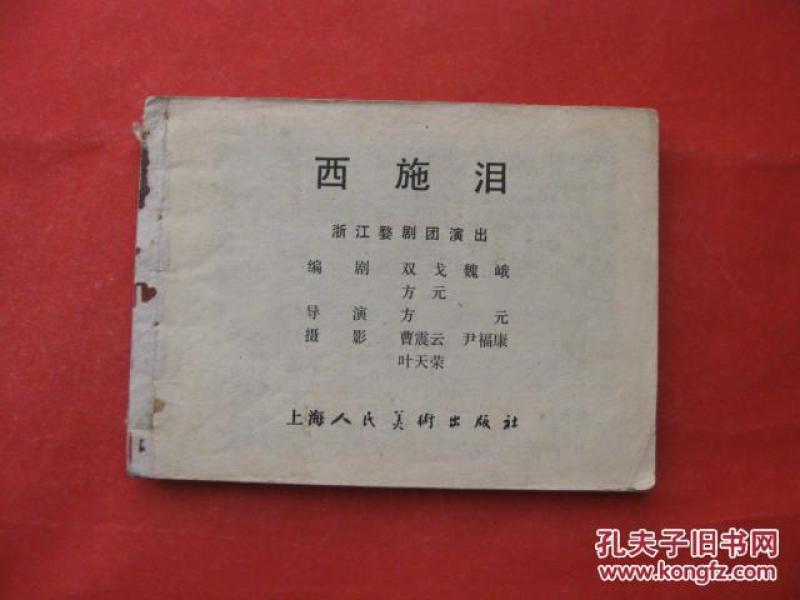 西施泪
浙江婺剧团演出
编剧 双戈 魏峨
方元
导演 方元
摄影 曹震云 尹福康
叶天荣
上海人民美術出版社
孔夫子旧书网
www.kongfz.com